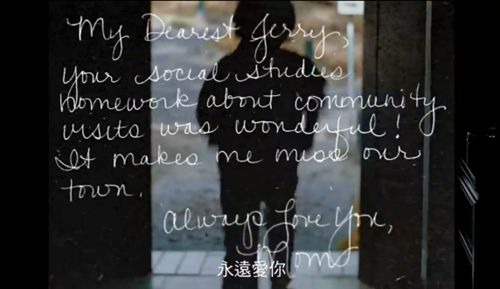 My Dearest Jerry,
your social studies
homework about community
visits was wonderful!
It makes me miss our
town.
Always Love You,
Mom
永遠愛你